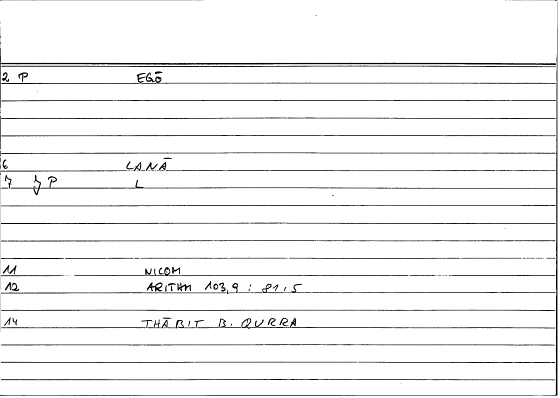 2 P EGŌ
6 LANĀ
7 P L
11 NICOM
12 ARITHM 103,9 : 81,5
14 THĀBIT B. QURRA